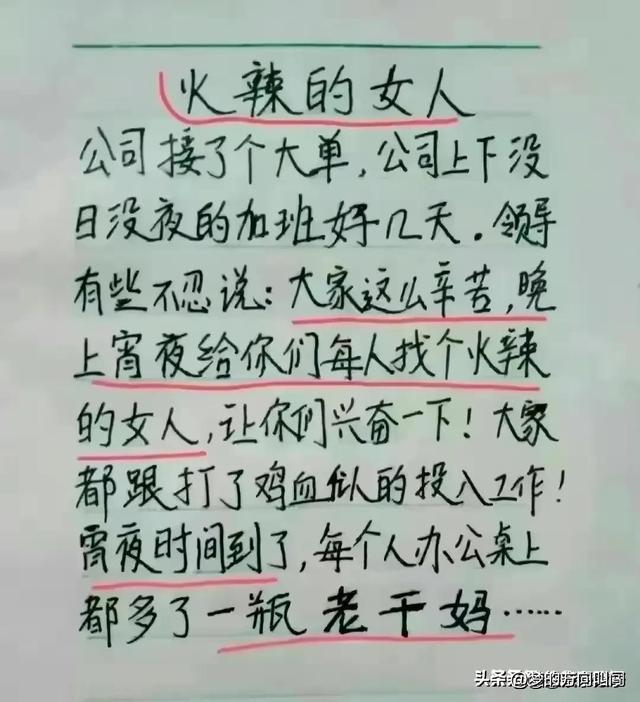 火辣的女人
公司接了个大单，公司上下没
日没夜的加班好几天。领导
有些不忍说：大家这么辛苦，晚
上宵夜给你们每人找个火辣
的女人，让你们兴奋一下！大家
都跟打了鸡血似的投入工作！
宵夜时间到了，每个人办公桌上
都多了一瓶老干妈……
头条
@梦的方向叫闯